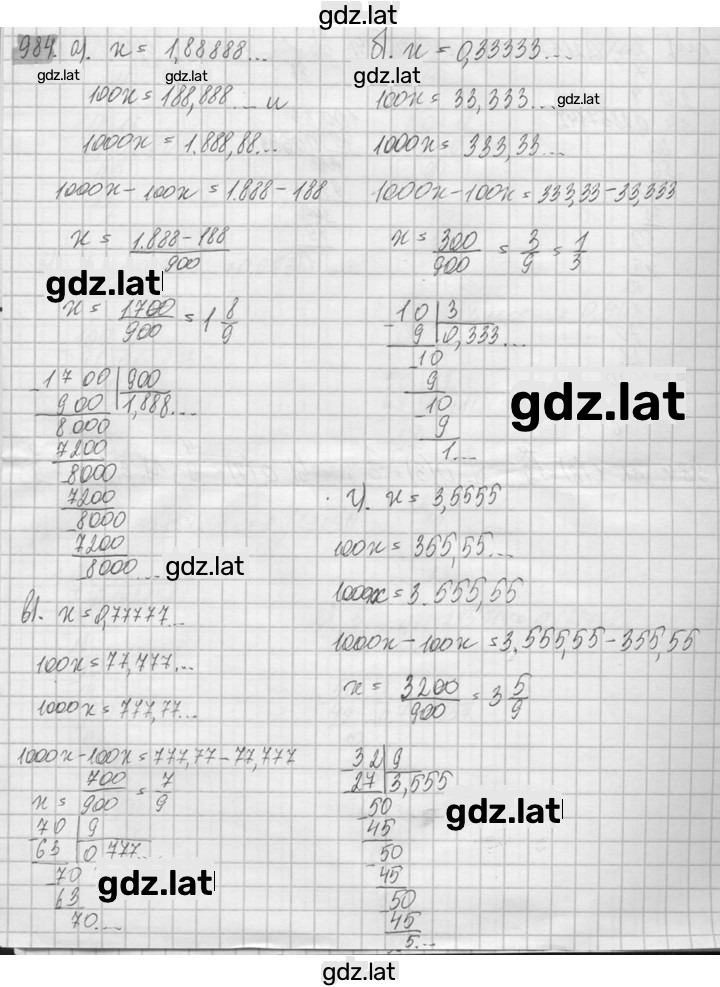 gdz.lat
984. а). x = 1,88888...
gdz.lat
100x = 188,888... и
1000x = 1.888,88...
1000x - 100x = 1.888 - 188
x = (1.888 - 188)/900
gdz.lat
x = 1700/900 = 1 8/9
1700 | 900
900 | 1,888...
8000
7200
8000
7200
8000
7200
8000...
gdz.lat
б). x = 0,33333...
gdz.lat
100x = 33,333...
gdz.lat
1000x = 333,33...
1000x - 100x = 333,33 - 33,333
x = 300/900 = 3/9 = 1/3
10 | 3
9 | 0,333...
10
9
10
9
1...
gdz.lat
в). x = 0,77777...
100x = 77,777...
1000x = 777,77...
1000x - 100x = 777,77 - 77,777
x = 700/900 = 7/9
70 | 9
63 | 0,777...
70
63
70...
gdz.lat
г). x = 3,5555
100x = 355,55...
1000x = 3.555,55
1000x - 100x = 3.555,55 - 355,55
x = 3200/900 = 3 5/9
32 | 9
27 | 3,555
50
45
50
45
50
45
5...
gdz.lat
gdz.lat